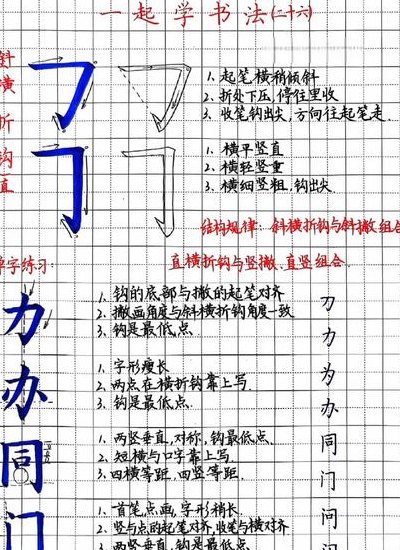 一起学书法(二十六)
斜横折钩直
1. 起笔横稍倾斜
2. 折处下压,停住里收
3. 收笔钩出尖,方向往起笔走.
1. 横平竖直
2. 横轻竖重
3. 横细竖粗,钩出尖.
结构规律:斜横折钩与斜撇组合
直横折钩与竖撇、直竖组合.
单字练习:
力
1. 钩的底部与撇的起笔对齐
2. 撇画角度与斜横折钩角度一致
3. 钩是最低点.
刀
力
办
1. 字形瘦长
2. 两点在横折钩靠上写.
3. 钩是最低点.
为
办
同
1. 两竖垂直,对称,钩最低点.
2. 短横与口字靠上写.
3. 四横等距,四竖等距.
同
门
门
1. 首笔点画,字形稍长.
2. 竖与点的起笔对齐,收笔与横对齐
3. 两竖垂直,钩最低点.
问
间